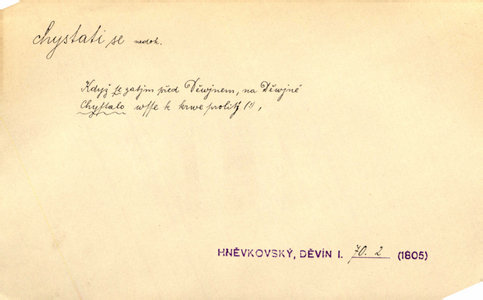 chystati se nedok.
Když se zatjm před Děwjnem, na Děwjně
Chystalo wsse k krwe prolitj (!),
HNĚVKOVSKÝ, DĚVÍN I. 70. 2 (1805)